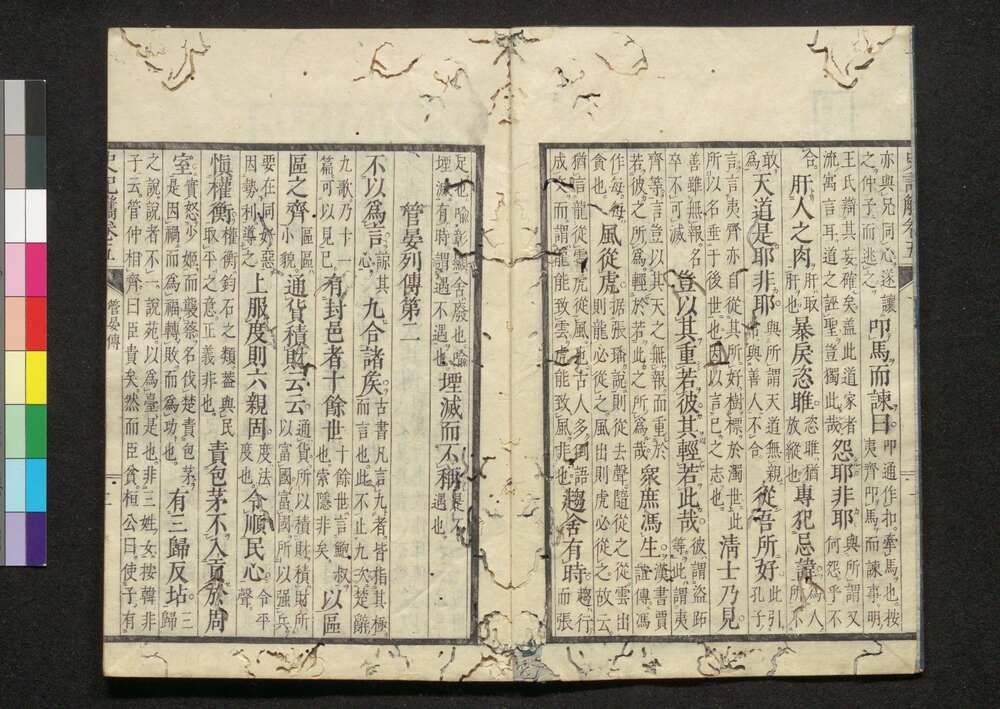 亦與兄同心遂讓之仲子而逃之 叩馬而諫曰 叩通作扣牽馬也按夷齊叩馬而諫事明
王氏辯其妄確矣蓋此道家者流寓言耳道之誣聖豈獨此哉 怨耶非耶 與所謂又何怨乎不
合 肝人之肉 肝取肝也 暴戾恣雎 恣雎猶放縱也 專犯忌諱 爲人所不
敢爲 天道是耶非耶 與所謂天道無親常與善人不合 從吾所好 此引孔子
言言夷齊亦自從其所好樹標於濁世此所以名垂于後世也因以言已之志也 清士乃見
善雖無報名卒不可滅 豈以其重若彼其輕若此哉 彼謂盜跖等此謂夷
齊等言豈以其天之無報而重於若彼之所爲輕於若此之所爲哉 衆庶馮生 漢書賈誼傳馮
作每每貪也 風從虎 据張璠說則從去聲隨從之從雲出則龍必從之風出則虎必從之故云
猶言龍從雲虎從風也古人多倒語成文而謂龍能致雲虎能致風非也 趨舍有時 趨行而張
足也喻彰顯舍廢也喻堙滅有時謂遇不遇也 堙滅而不稱 不遇也
管晏列傳第二
不以爲言 諒其心 九合諸矦 古書凡言九者皆指其極而言也此不止九次楚辭
九歌乃十一篇可以見已 有封邑者十餘世 十餘世言鮑叔也索隱非矣 以區
區之齊 區區小貌 通貨積財云云 通貨所以積財積財所以富國富國所以强兵
要在同好惡因勢利導之 上服度則六親固 度法度也 令順民心 令平聲
愼權衡 權衡鈞石之類蓋與民取平之意正義非也 責包茅不入貢於周
室 實怒少姬而襲蔡名伐楚責包茅是因禍而爲福轉敗而爲功也 有三歸反坫 三歸
之說說者不一說苑以爲臺是也非三姓女按韓非子云管仲相齊曰臣貴矣然而臣貧桓公曰使子有
史記觿卷五 管晏傳